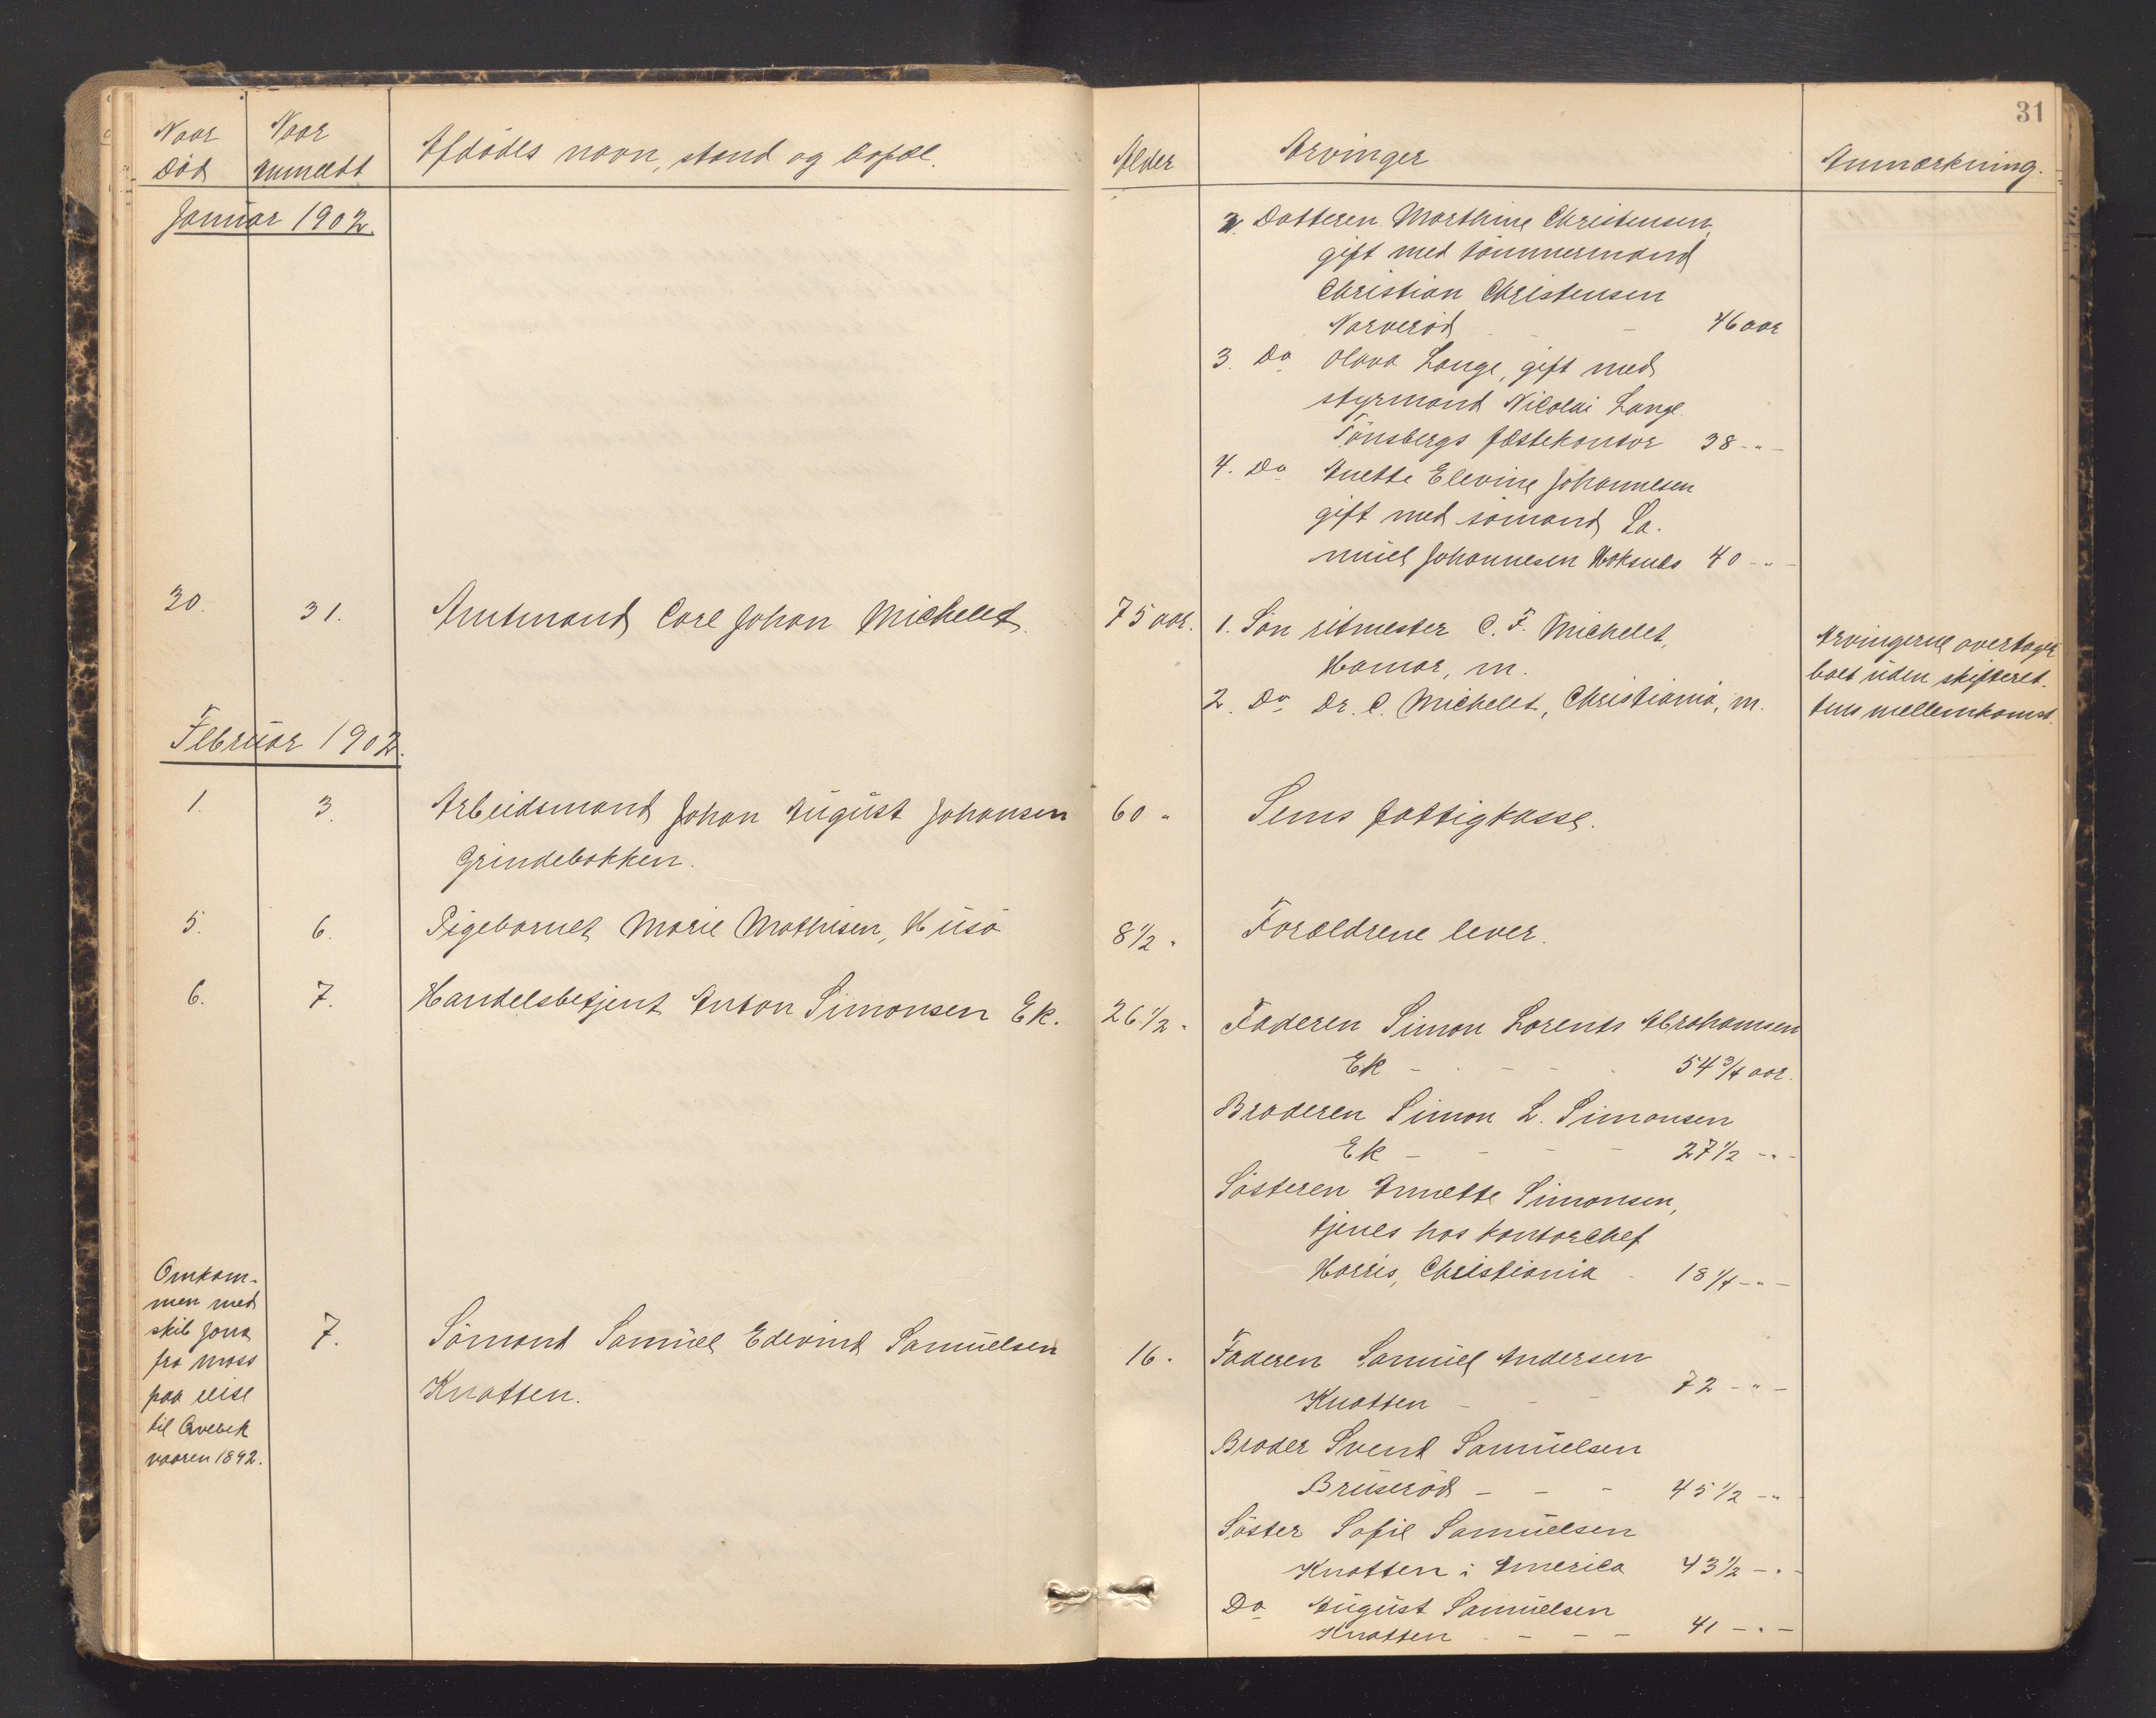 31
Naar Død
Naar anmeldt
Afdødes navn, stand og bopæl.
Alder
Arvinger
Anmærkning.
Januar 1902.
2. Datteren Marthine Christensen,
gift med tömmermand
Christian Christensen
Narveröd - - 46 aar
3. Do Olava Lange, gift med
styrmand Nicolai Lange
Tönsbergs fæstekontor 38 - " -
4. Do Anette Elevine Johannesen
gift med sömand Sa-
muel Johannesen Hoksnes 40 - " -
30. 31. Amtmand Carl Johan Michelet. 75 aar. 1. Sön ritmester C. F. Michelet,
Hamar, m.
2. Do Dr. C. Michelet, Christiania, m.
Arvingerne overtager
boet uden skifteret-
tens mellemkomst.
Februar 1902.
1. 3. Arbeidsmand Johan August Johansen 60 " Sems fattigkasse.
Grindebakken.
5. 6. Pigebarnet Marie Mathisen, Husö 8 1/2 " Forældrene lever.
6. 7. Handelsbetjent Anton Simonsen Ek. 26 1/2 " Faderen Simon Lorents Abrahamsen
Ek - - - - 54 3/4 aar.
Broderen Simon L. Simonsen
Ek - - - - 27 1/2 - " -
Sösteren Annette Simonsen,
tjenes hos kontorchef
Harris, Christiania - 18 1/4 - " -
Omkom-
men med
skib Jona
fra Moss
paa reise
til Qvebek
vaaren 1892.
7. Sömand Samuel Edevind Samuelsen 16. Faderen Samuel Andersen
Knatten.
Knatten - - - 72 - " -
Broder Svend Samuelsen
Bruseröd - - - 45 1/2 - " -
Söster Sofie Samuelsen
Knatten i America 43 1/2 - " -
Do August Samuelsen
Knatten - - - - 41 - " -